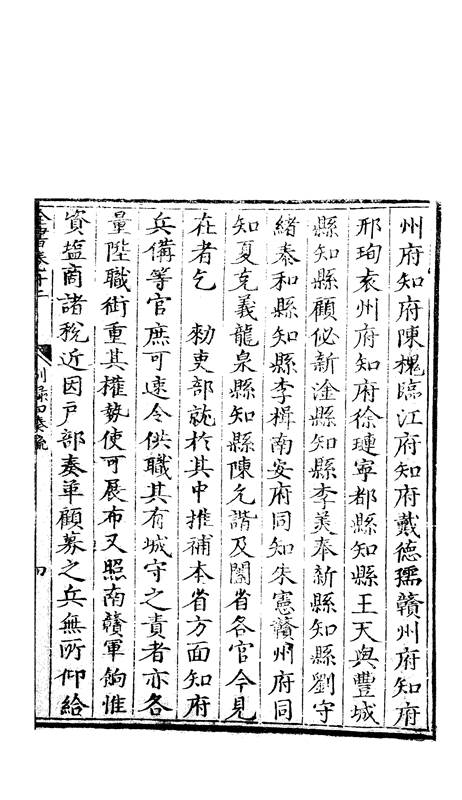 州府知府陳槐臨江府知府戴德孺贛州府知府
邢珣袁州府知府徐璉寧都縣知縣王天與豐城
縣知縣顧佖新淦縣知縣李美奉新縣知縣劉守
緒泰和縣知縣李楫南安府同知朱憲贛州府同
知夏克義龍泉縣知縣陳允諧及闔省各官今見
在者乞　勑吏部就於其中推補本省方面知府
兵備等官庶可速令供職其有城守之責者亦各
量陞職銜重其權勢使可展布又照南贛軍餉惟
資塩商諸稅近因戶部奏革顧募之兵無所仰給
全書卷十二　別錄四奏疏　四